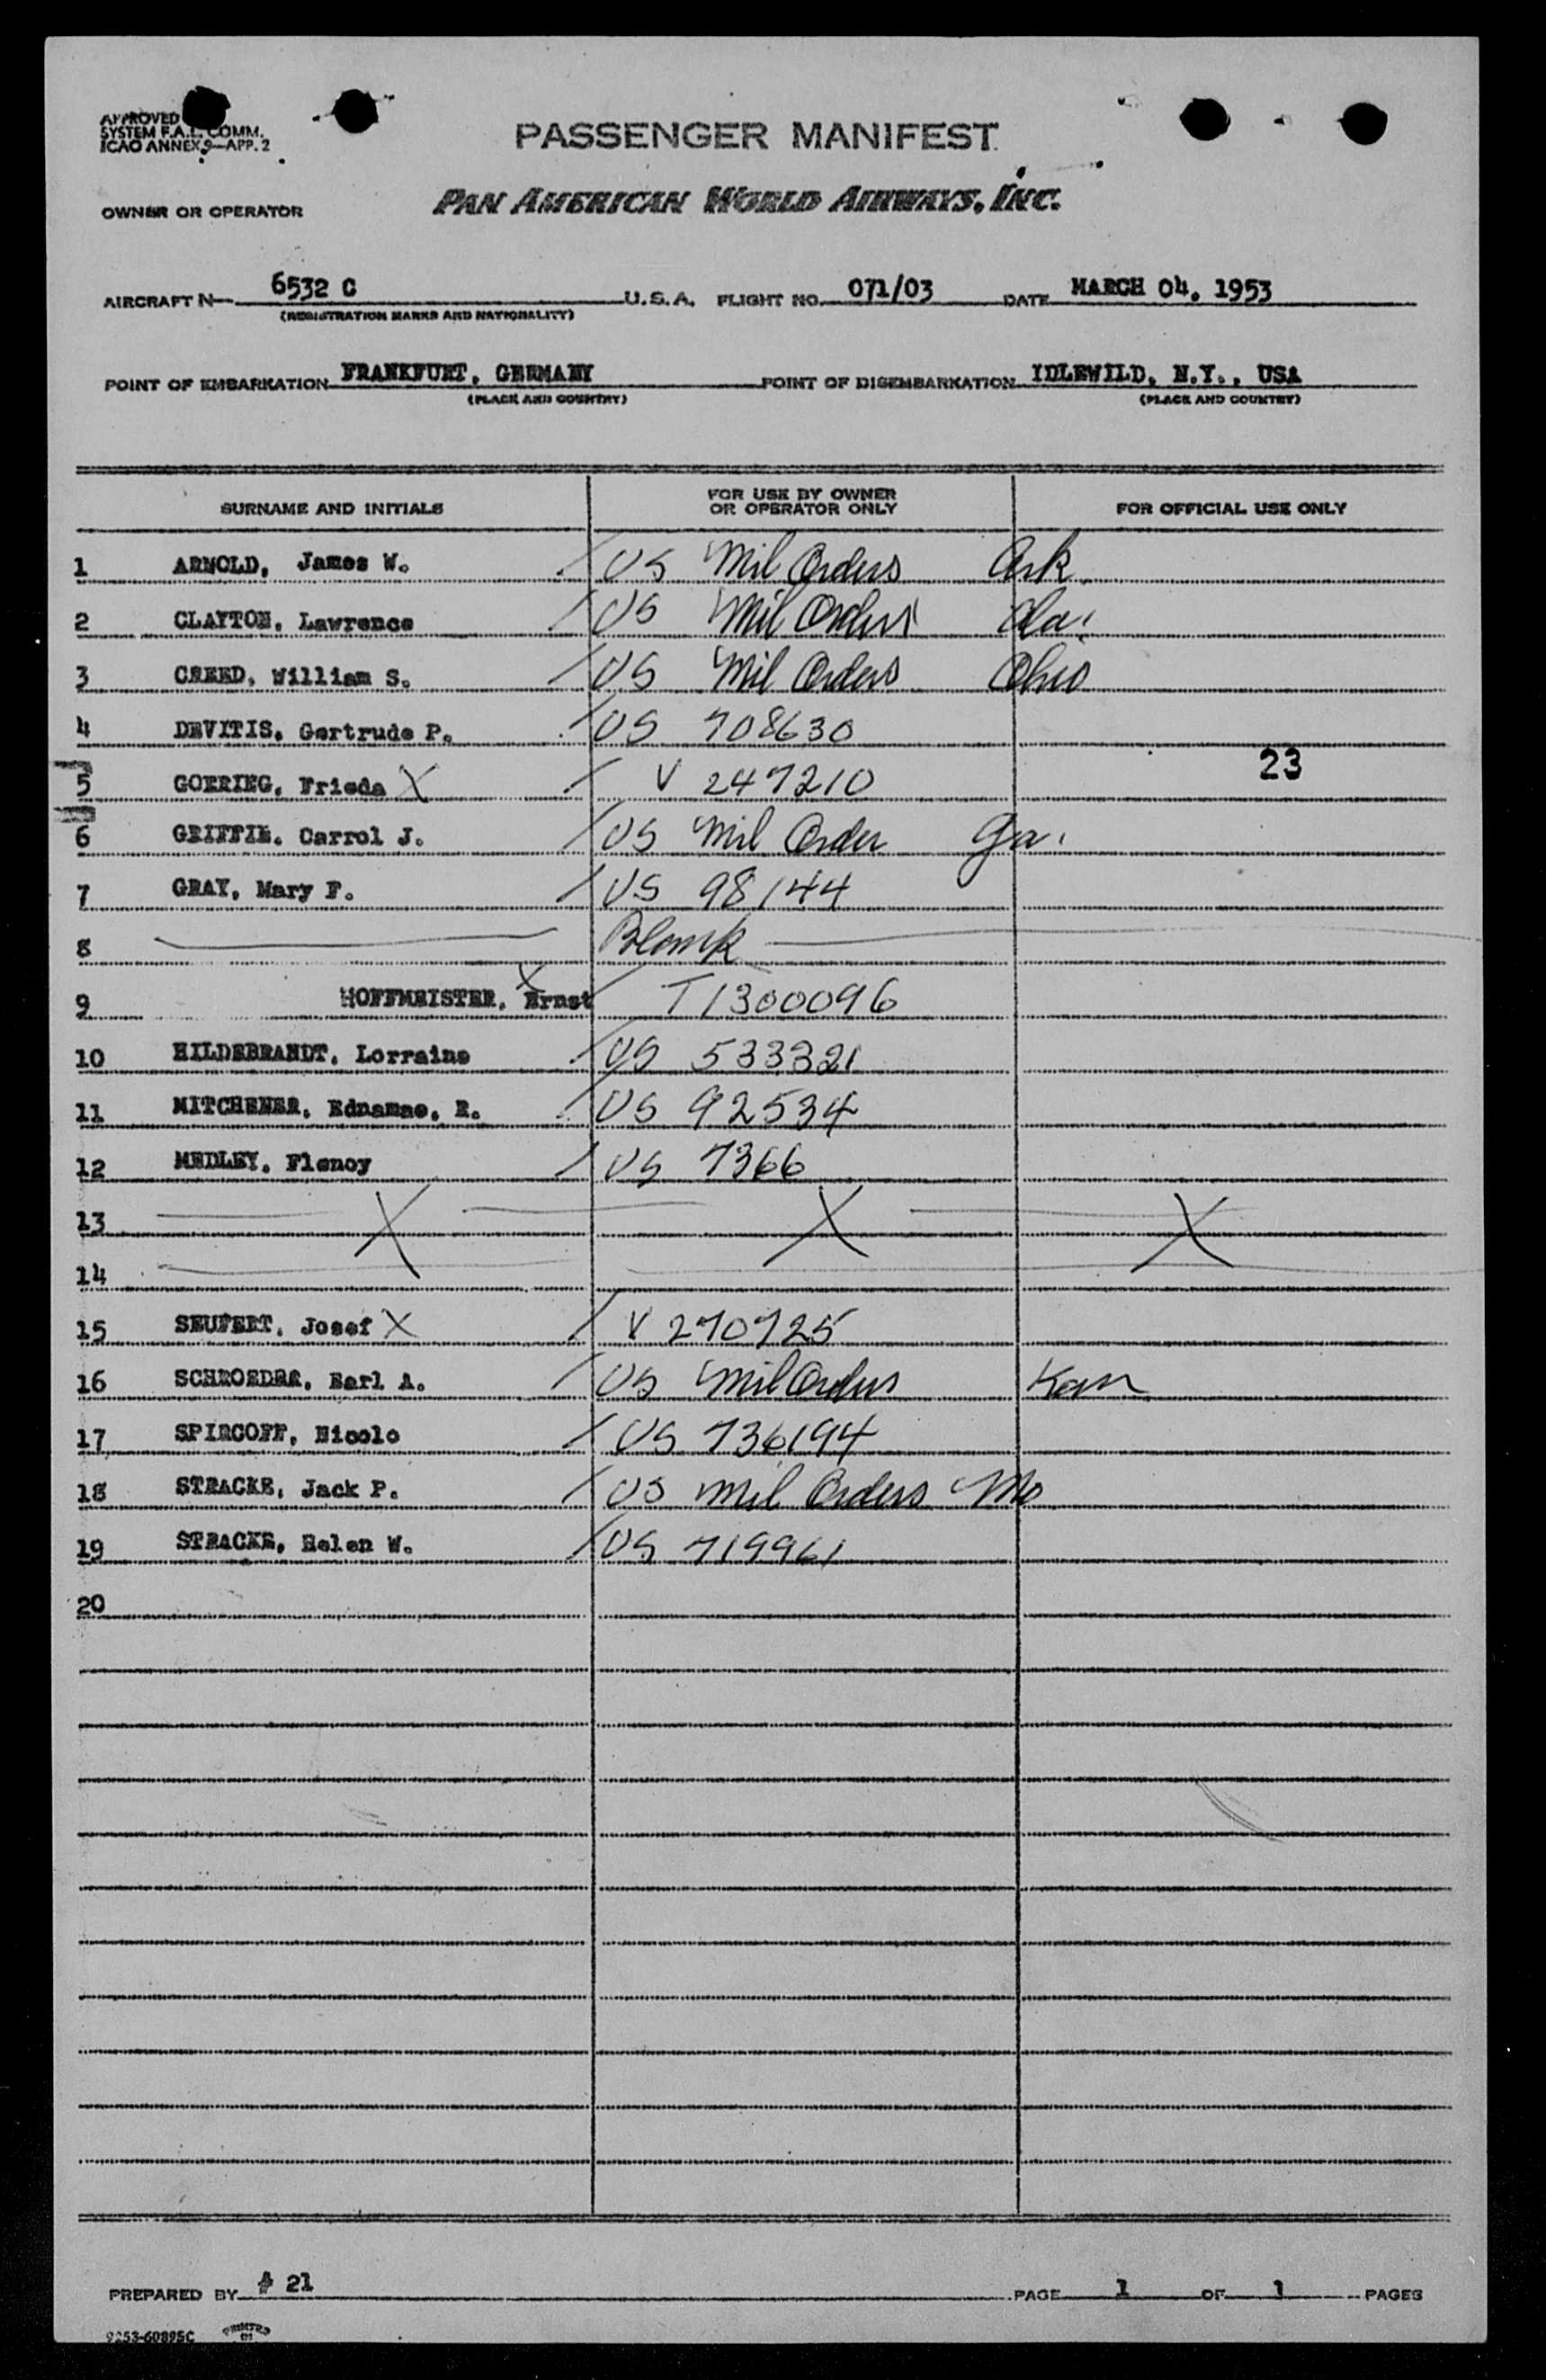 APPROVED
SYSTEM F.A.L. COMM.
ICAO ANNEX 9—APP. 2
PASSENGER MANIFEST
OWNER OR OPERATOR PAN AMERICAN WORLD AIRWAYS, INC.
AIRCRAFT N— 6532 C U.S.A. FLIGHT NO. 071/03 DATE MARCH 04, 1953
(REGISTRATION MARKS AND NATIONALITY)
POINT OF EMBARKATION FRANKFURT, GERMANY POINT OF DISEMBARKATION IDLEWILD, N.Y., USA
(PLACE AND COUNTRY) (PLACE AND COUNTRY)
SURNAME AND INITIALS FOR USE BY OWNER OR OPERATOR ONLY FOR OFFICIAL USE ONLY
1 ARNOLD, James W. / US Mil Orders Ark
2 CLAYTON, Lawrence / US Mil Orders
3 CREED, William S. / US Mil Orders Ohio
4 DEVITIS, Gertrude P. / US 708630
23
5 GOERING, Frieda X / V 247210
6 GRIFFIN, Carrol J. / US Mil Order Ga.
7 GRAY, Mary F. / US 98144
8 Blank
9 HOFFMEISTER, Ernst X / T1300096
10 HILDEBRANDT, Lorraine / US 533321
11 MITCHENER, Ednamae, R. / US 92534
12 MEDLEY, Flenoy / US 7366
13 X X X
14
15 SEUFERT, Josef X / V 270725
16 SCHROEDER, Earl A. / US Mil Orders Kan
17 SPIRCOFF, Nicolo / US 736194
18 STRACKE, Jack P. / US Mil Orders Mo
19 STRACKE, Helen W. / US 719961
20
PREPARED BY # 21 PAGE 1 OF 1 PAGES
9253-60895C PRINTED IN